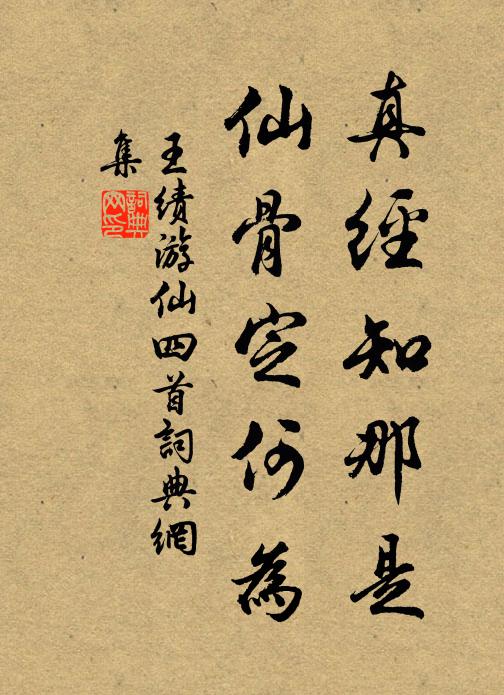 真經知那是
仙骨定何為
王績游仙四首詞典網
集
詞典网印